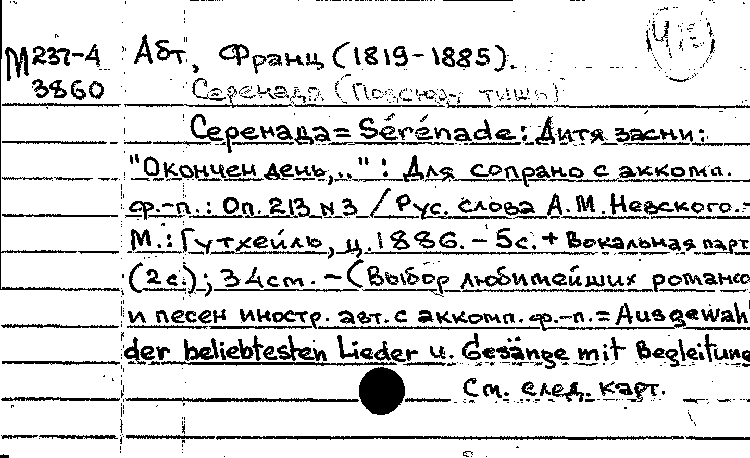 М 237-4 Абт, Франц (1819-1885).
3860 Серенада (Повсюду тишь)
Серенада = Sérénade: Дитя засни:
"Окончен день,..": Для сопрано с аккомп.
ф.-п.: Оп. 213 N 3 / Рус. слова А.М. Невского.-
М.: Гутхейль, ц. 1886. - 5с. + Вокальная парт
(2с.); 34см. - (Выбор любимейших романсо
и песен иностр. авт. с аккомп. ф.-п. = Ausgewäh
der beliebtesten Lieder u. Gesänge mit Begleitung
См. след. карт.